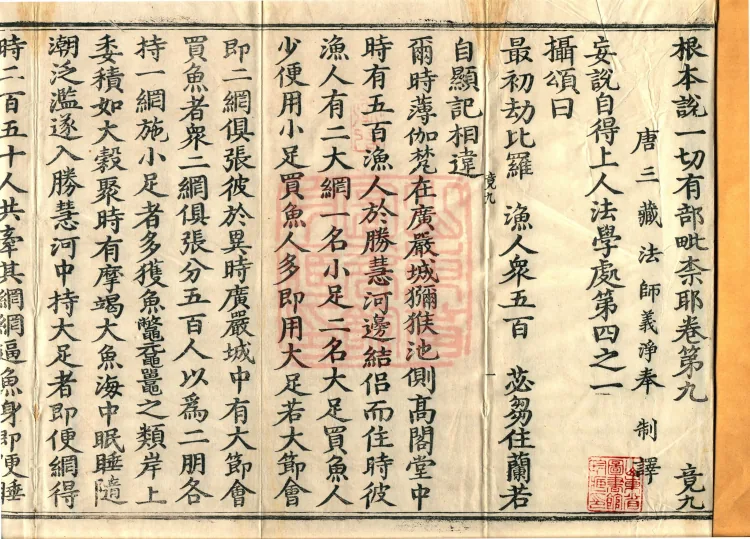 根本說一切有部毗柰耶卷第九 竟九
唐三藏法師義淨奉 制譯
妄說自得上人法學處第四之一
攝頌曰
最初劫比羅 漁人衆五百 苾芻住蘭若
自顯記相違
竟九
爾時薄伽梵在廣嚴城獼猴池側髙閣堂中
時有五百漁人於勝慧河邊結侶而住時彼
漁人有二大網一名小足二名大足買魚人
少便用小足買魚人多即用大足若大節會
即二網俱張彼於異時廣嚴城中有大節會
買魚者衆二網俱張分五百人以爲二朋各
持一網施小足者多獲魚鼈黿鼉之類岸上
委積如大穀聚時有摩竭大魚海中眠睡隨
潮泛濫遂入勝慧河中持大足者即便網得
時二百五十人共牽其網網逼魚身即便睡
山東省
圖書館